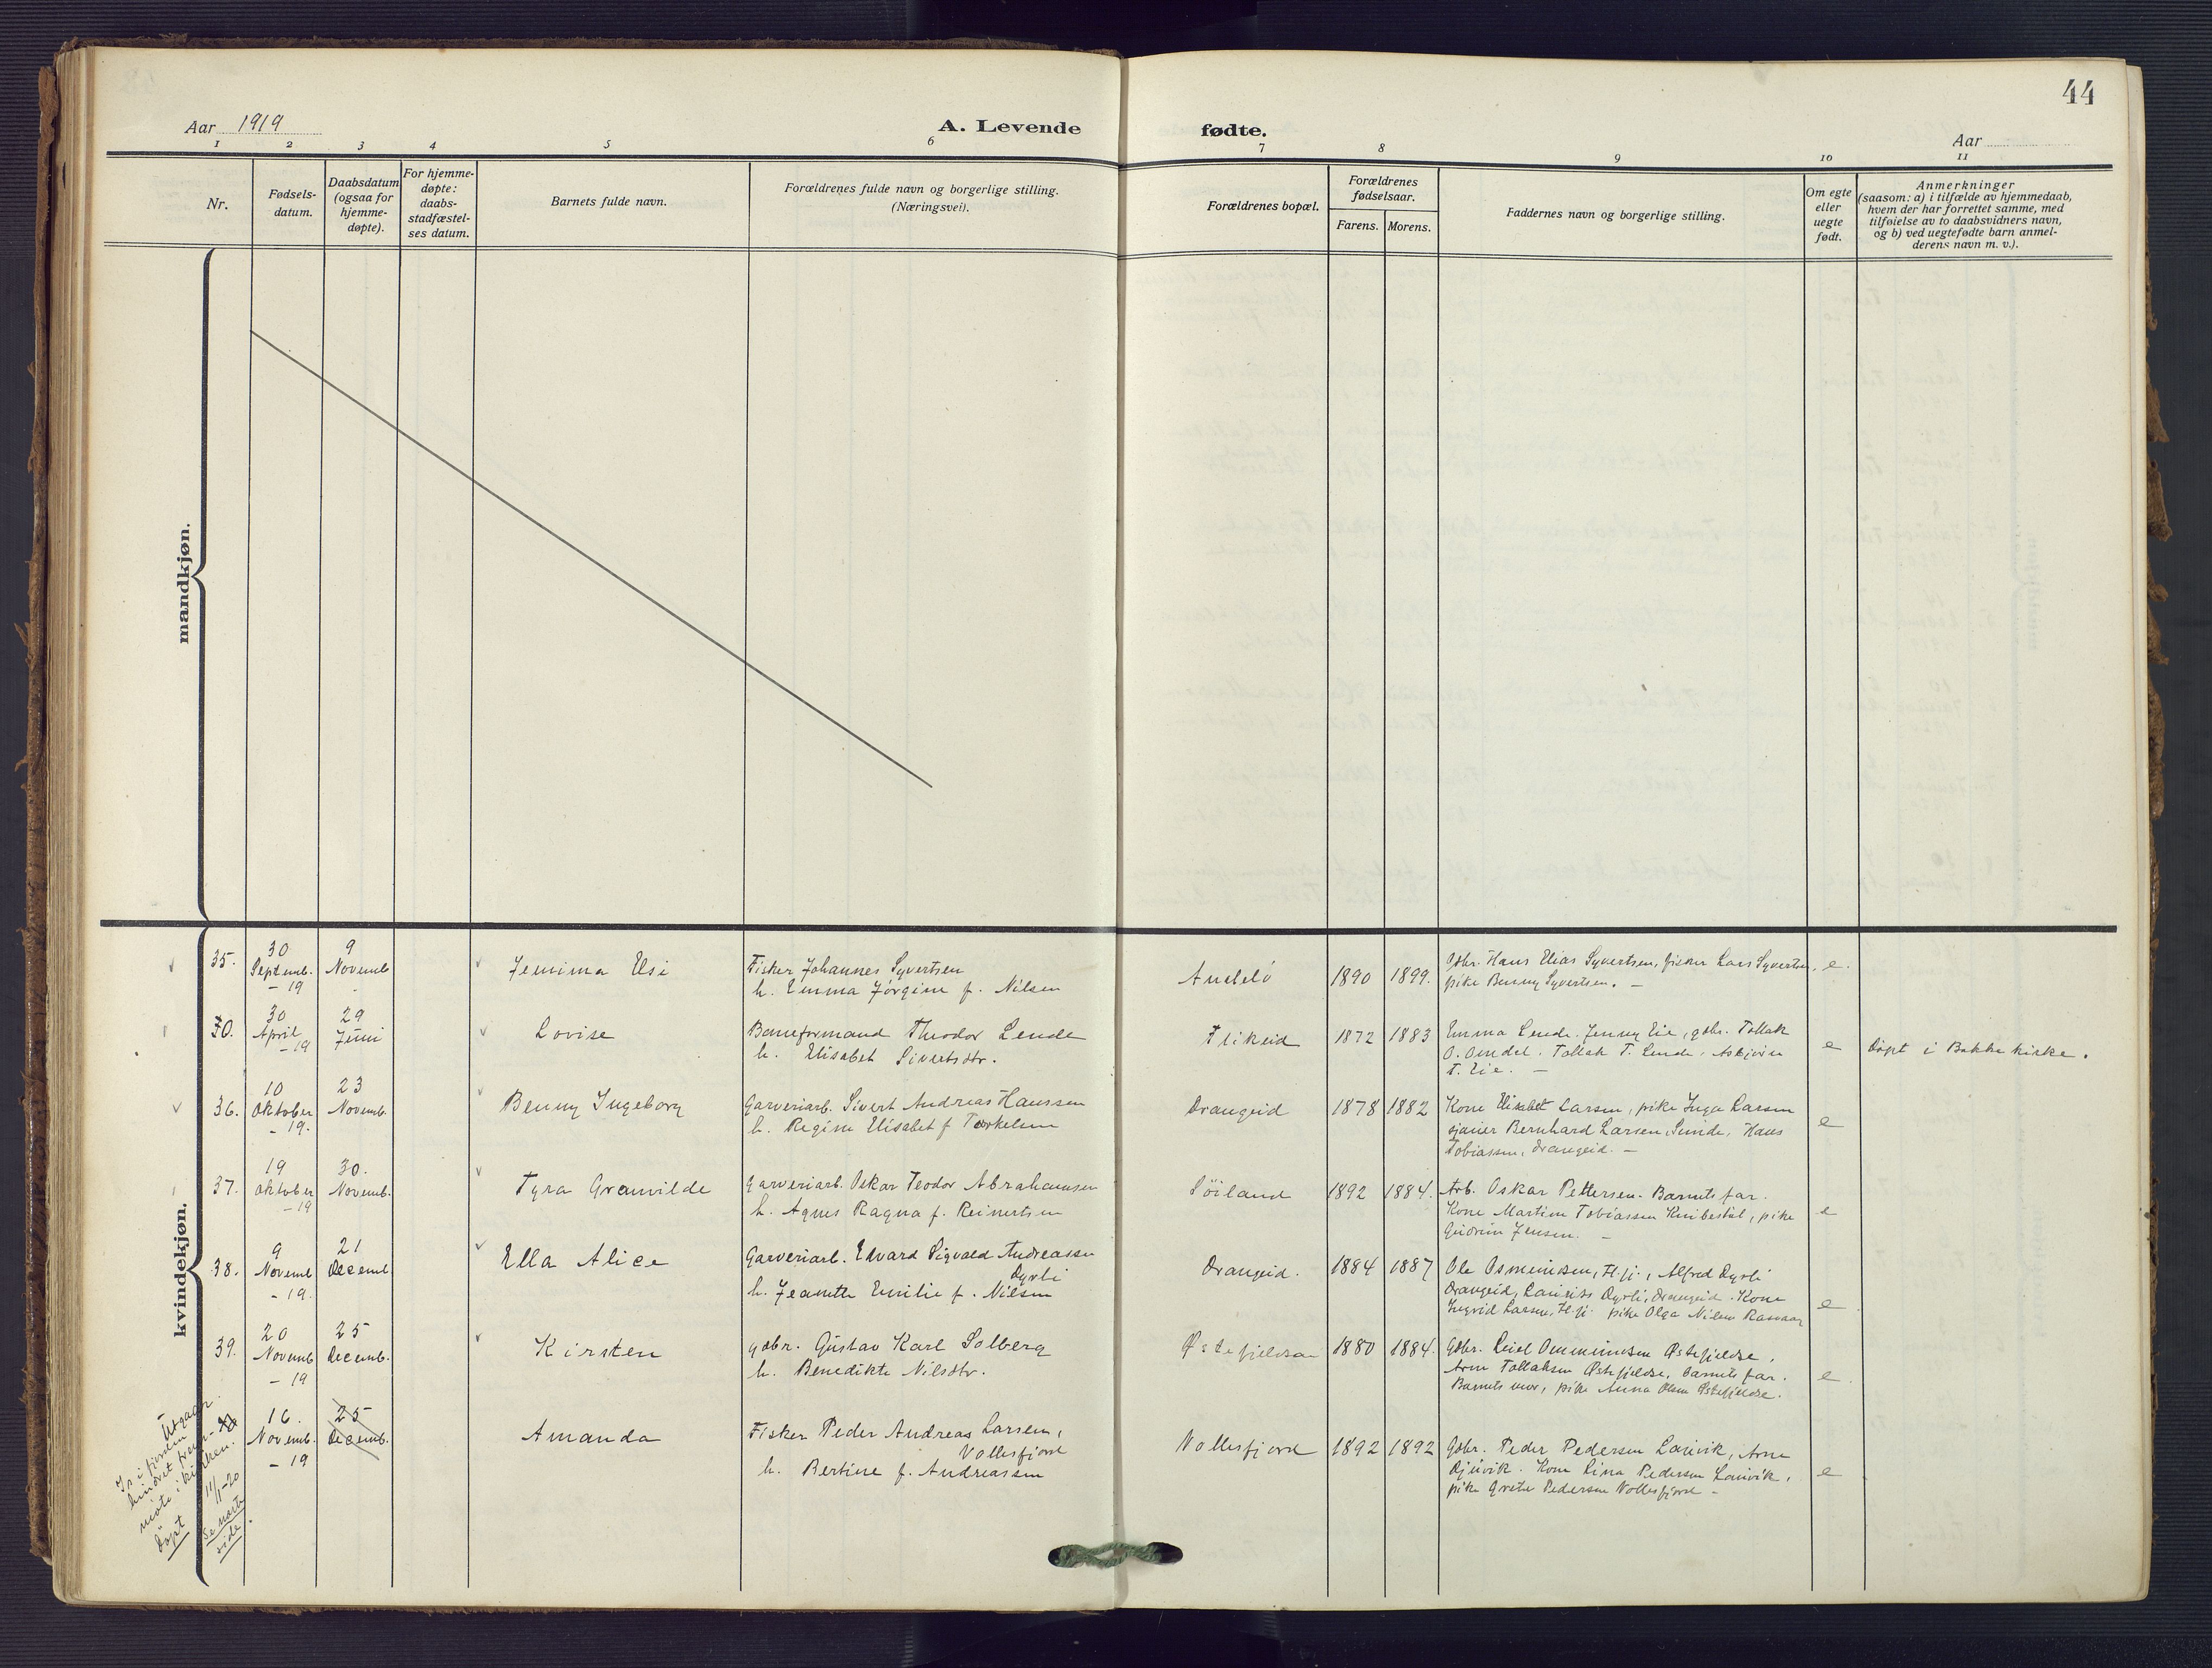 44
Aar 1919
A. Levende fødte.
Aar
1 2 3 4 5 6 7 8 9 10 11
Nr.
Fødsels-
datum.
Daabsdatum
(ogsaa for
hjemme-
døpte).
For hjemme-
døpte:
daabs-
stadfæstel-
ses datum.
Barnets fulde navn.
Forældrenes fulde navn og borgerlige stilling.
(Næringsvei).
Forældrenes bopæl.
Forældrenes
fødselsaar.
Farens. Morens.
Faddernes navn og borgerlige stilling.
Om egte
eller
uegte
født.
Anmerkninger
(saasom: a) i tilfælde av hjemmedaab,
hvem der har forrettet samme, med
tilføielse av to daabsvidners navn,
og b) ved uegtefødte barn anmel-
derens navn m. v.).
mandkjøn.
kvindekjøn.
35.
30
Septemb.
- 19
9
Novemb
Jemima Elsi
Fisker Johannes Syvertsen
h. Emma Jørgine f. Nilsen
1890 1899.
Gbr. Hans Elias Syvertsen, fisker Lars Syvertsen,
pike Benny Syvertsen. -
e.
30.
30
April
- 19
29
Juni
Lovise
Baneformand Theodor Lende
h. Elisabet Sivertsdtr.
Flikeid
1872 1883
Emma Lende. Jenny Eie, gbr. Tollak
O. Omdal. Tollak T. Lende. Askjørin
T. Eie. -
e
Døpt i Bakke kirke.
36.
10
Oktober
- 19.
23
Novemb.
Benny Ingeborg
Garveriarb. Sivert Andreas Hanssen
h. Regine Elisabet f. Torkelsen
Drangeid
1878 1882
Kone Elisabet Larsen, pike Inga Larsen
Bernhard Larsen, Sunde, Hans
Tobiassen, Drangeid. -
e
37.
19
Oktober
- 19
30.
Novemb.
Tyra Gramilde
Garveriarb. Oskar Teodor Abrahamsen
h. Agnes Ragna f. Reinertsen
Søiland
1892 1884.
Arb. Oskar Pettersen. Barnets far.
Kone Martine Tobiassen Knibestøl, pike
Gudrun Jensen. -
e
38.
9
Novemb
- 19.
21
Decemb
Ella Alice
Garveriarb. Edvard Sigvald Andreassen
Dyrli
h. Jeanette Emilie f. Nilsen
Drangeid.
1884 1887
Ole Osmundsen, Hji., Alfred Dyrli
Drangeid, Laurits Dyrli, Drangeid. Kone
Ingrid Larsen, Hji. pike Olga Nilsen
e
39.
20
Novemb
- 19
25
Decemb.
Kirsten
gbr. Gustav Karl Solberg
h. Benedikte Nilsdtr.
Østefjeldsaa
1880 1884.
Gbr. Ommundsen Østefjeldse,
Arne Tollaksen Østefjeldse, barnets far.
Barnets mor, pike Anna Olsen Østefjeldse.
e
16.
Novemb.
- 19
25
Decemb.
Amanda
Fisker Peder Andreas Larsen,
Vollesfjord
h. Bertine f. Andreassen
Vollesfjord
1892 1892
Gbr. Peder Pedersen Lauvik, Arne
Djupvik. Kone Lina Pedersen Lauvik,
pike Grete Pedersen Vollesfjord -
e
Utgaar
Is i fjorden
hindret frem-
møte i kirken.
døpt 11/1-20
Se næste
side.